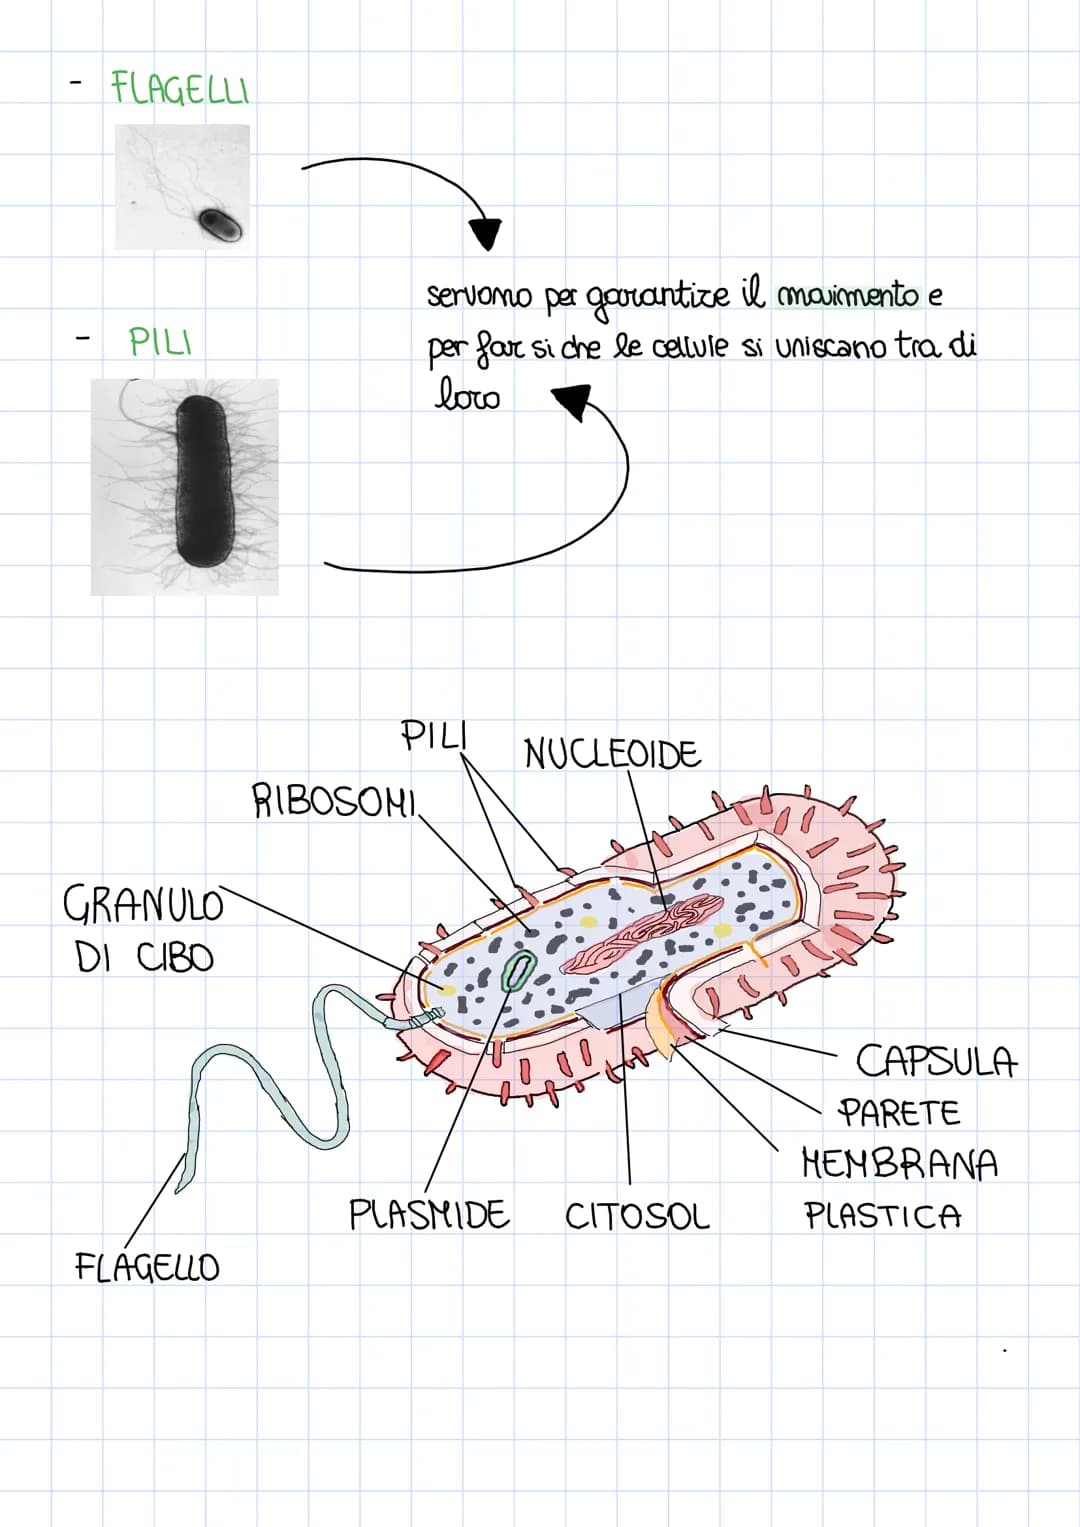 - FLAGELLI
servono per garantire il movimento e
- PILI
per far si che le cellule si uniscano tra di
loro
PILI
NUCLEOIDE
RIBOSOMI
GRANULO
DI CIBO
CAPSULA
PARETE
MEMBRANA
PLASTICA
PLASMIDE
CITOSOL
FLAGELLO